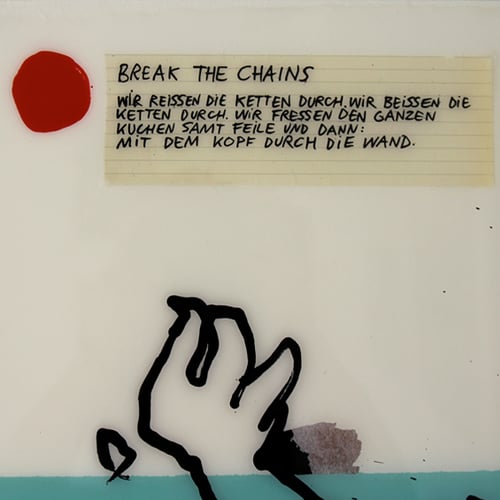 BREAK THE CHAINS
WIR REISSEN DIE KETTEN DURCH. WIR BEISSEN DIE
KETTEN DURCH. WIR FRESSEN DEN GANZEN
KUCHEN SAMT FEILE UND DANN:
MIT DEM KOPF DURCH DIE WAND.